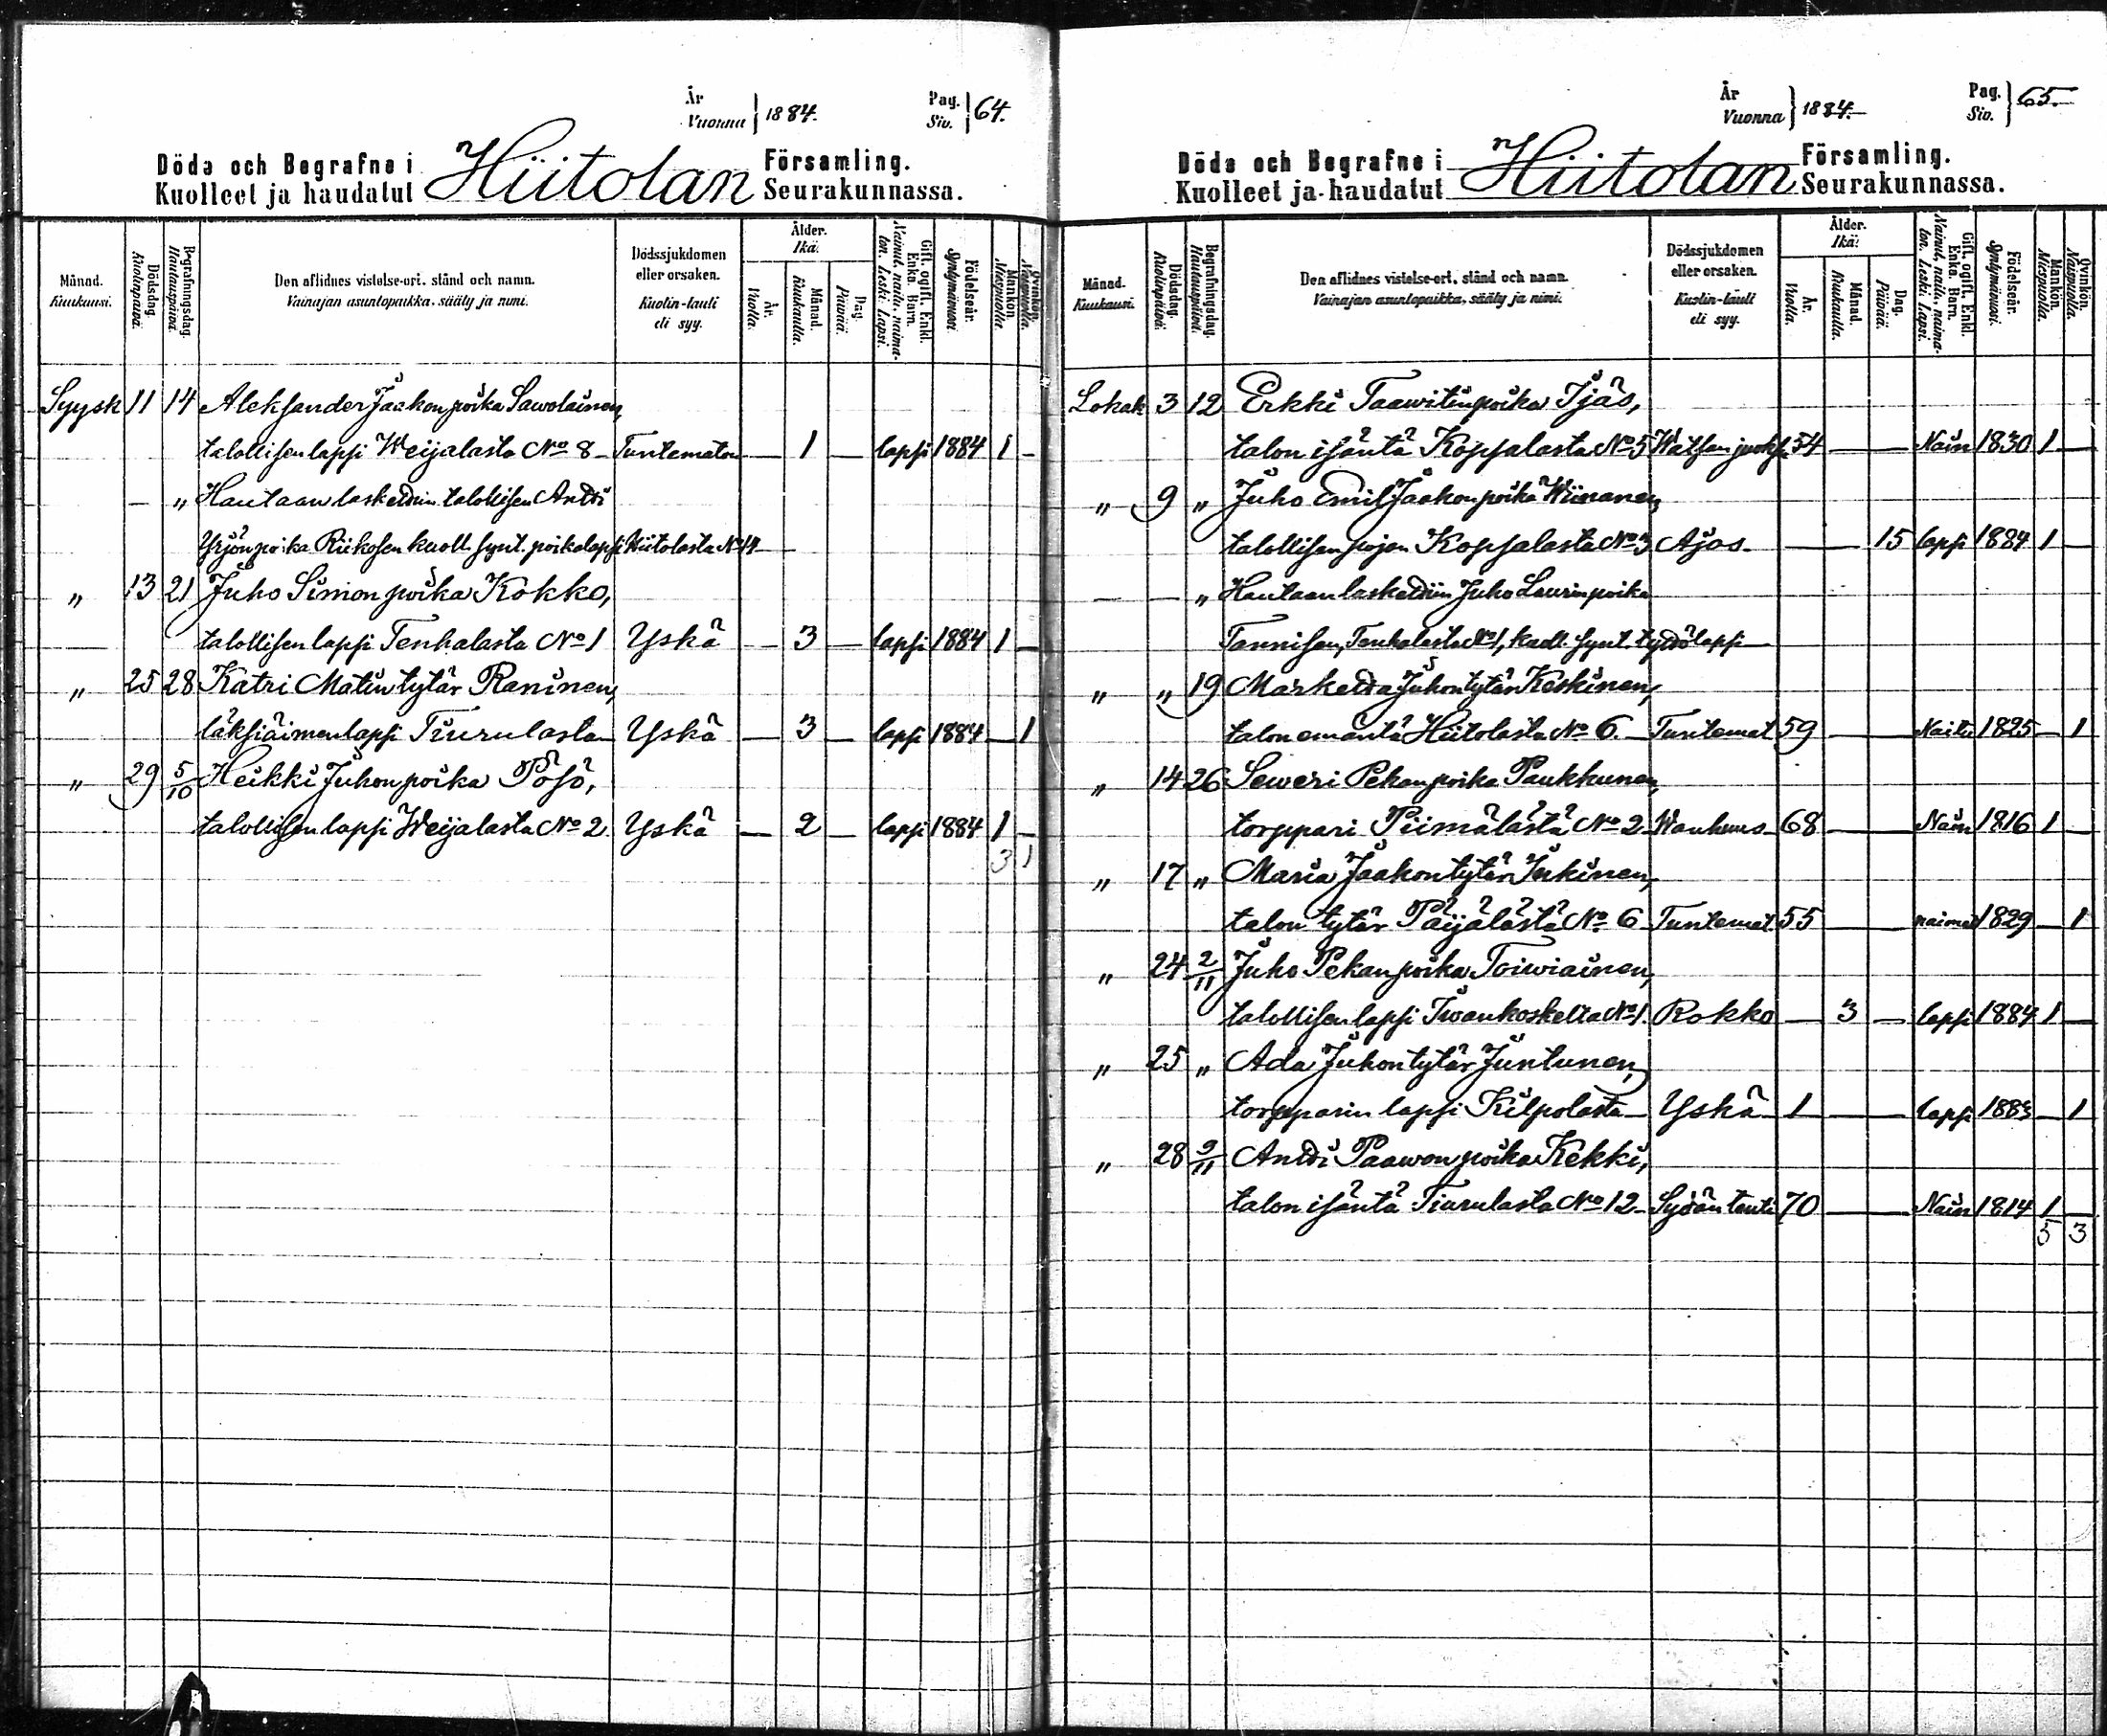 År
Vuonna } 1884.
Pag.
Siv. } 64.
Döda och Begrafne i Hiitolan Församling.
Kuolleet ja haudatut Seurakunnassa.
Månad. Kuukausi.
Dödsdag. Kuolinpäivä.
Begrafningsdag. Hautauspäivä.
Den aflidnes vistelse-ort, stånd och namn.
Vainajan asuntopaikka, sääty ja nimi.
Dödssjukdomen eller orsaken.
Kuolin-tauti eli syy.
Ålder. Ikä.
År. Vuotta.
Månad. Kuukautta.
Dag. Päivää.
Gift, ogift, Enkl. Enka. Barn.
Nainut, naitu, naima-ton. Leski. Lapsi.
Födelseår. Syntymävuosi.
Mankön. Miespuolia.
Qvinkön. Naispuolia.
Syysk 11 14 Aleksander Jaakonpoika Sawolainen,
talollisen lapsi Weijalasta No 8 Tuntematon — 1 — lapsi 1884 1 —
— " Hautaan laskettiin talollisen Antti
Yrjönpoika Riikosen kuoll. synt. poikalapsi Hiitolasta No 14
" 13 21 Juho Simonpoika Kokko,
talollisen lapsi Tenhalasta No 1 Yskä — 3 — lapsi 1884 1 —
" 25 28 Katri Matintytär Raninen,
läksiäimen lapsi Tiurulasta Yskä — 3 — lapsi 1884 — 1
" 29 5/10 Heikki Juhonpoika Pösö,
talollisen lapsi Weijalasta No 2 Yskä — 2 — lapsi 1884 1 —
3 1
År
Vuonna } 1884.
Pag.
Siv. } 65.
Döda och Begrafne i Hiitolan Församling.
Kuolleet ja haudatut Seurakunnassa.
Månad. Kuukausi.
Dödsdag. Kuolinpäivä.
Begrafningsdag. Hautauspäivä.
Den aflidnes vistelse-ort, stånd och namn.
Vainajan asuntopaikka, sääty ja nimi.
Dödssjukdomen eller orsaken.
Kuolin-tauti eli syy.
Ålder. Ikä.
År. Vuotta.
Månad. Kuukautta.
Dag. Päivää.
Gift, ogift, Enkl. Enka. Barn.
Nainut, naitu, naima-ton. Leski. Lapsi.
Födelseår. Syntymävuosi.
Mankön. Miespuolia.
Qvinkön. Naispuolia.
Lokak 3 12 Erkki Taawitinpoika Ijäs,
talon isäntä Kopsalasta No 5 Watsan juoks. 54 — Nain 1830 1 —
" 9 " Juho Emil Jaakonpoika Wiinanen,
talollisen pojan Kopsalasta No 3 Ajos — 15 lapsi 1884 1 —
— — " Hautaan laskettiin Juho Laurinpoika
Tannisen, Tenhalasta No 1, kuoll. synt. tyttölapsi
" " 19 Marketta Juhontytär Keskinen,
talon emäntä Hiitolasta No 6. Tuntemat 59 — Naitu 1825 — 1
" 14 26 Seweri Pekanpoika Paukkunen,
torppari Piimälästä No 2 Wanhuus 68 — Nain 1816 1 —
" 17 " Maria Jaakontytär Inkinen,
talon tytär Päijälästä No 6 Tuntemat 55 — naimat 1829 — 1
" 24 2/11 Juho Pekanpoika Toiwiainen,
talollisen lapsi Iwankoskelta No 1. Rokko — 3 — lapsi 1884 1 —
" 25 " Ada Juhontytär Juntunen,
torpparin lapsi Kilpolasta Yskä 1 — lapsi 1883 — 1
" 28 9/11 Antti Paawonpoika Kekki,
talon isäntä Tiurulasta No 12 Sydäntauti 70 — Nain 1814 1 —
5 3